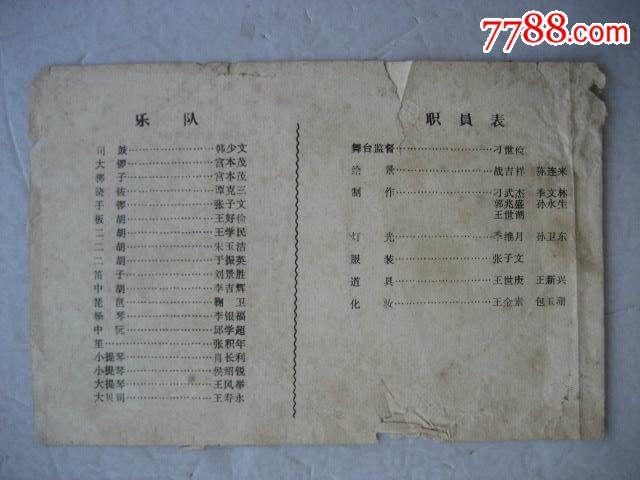 7788.com
乐队
司鼓 韩少文
大锣 宫本茂
梆子 宫本茂
铙钹 谭克三
手锣 张子文
板胡 王好俭
二胡 王学民
二胡 朱玉洁
二胡 于振英
笛子 刘景胜
中胡 李吉辉
琵琶 鞠卫
杨琴 李银福
中阮 邱学超
笙 张积年
小提琴 肖长利
小提琴 侯绍锐
大提琴 王风举
大贝司 王寿永
职員表
舞台监督 刁世俭
绘景 战吉祥 陈连来
制作 刁武杰 季文林
郭兆盛 孙永生
王世湖
灯光 季维月 孙卫东
服装 张子文
道具 王世庚 王新兴
化妆 王金素 包玉朋